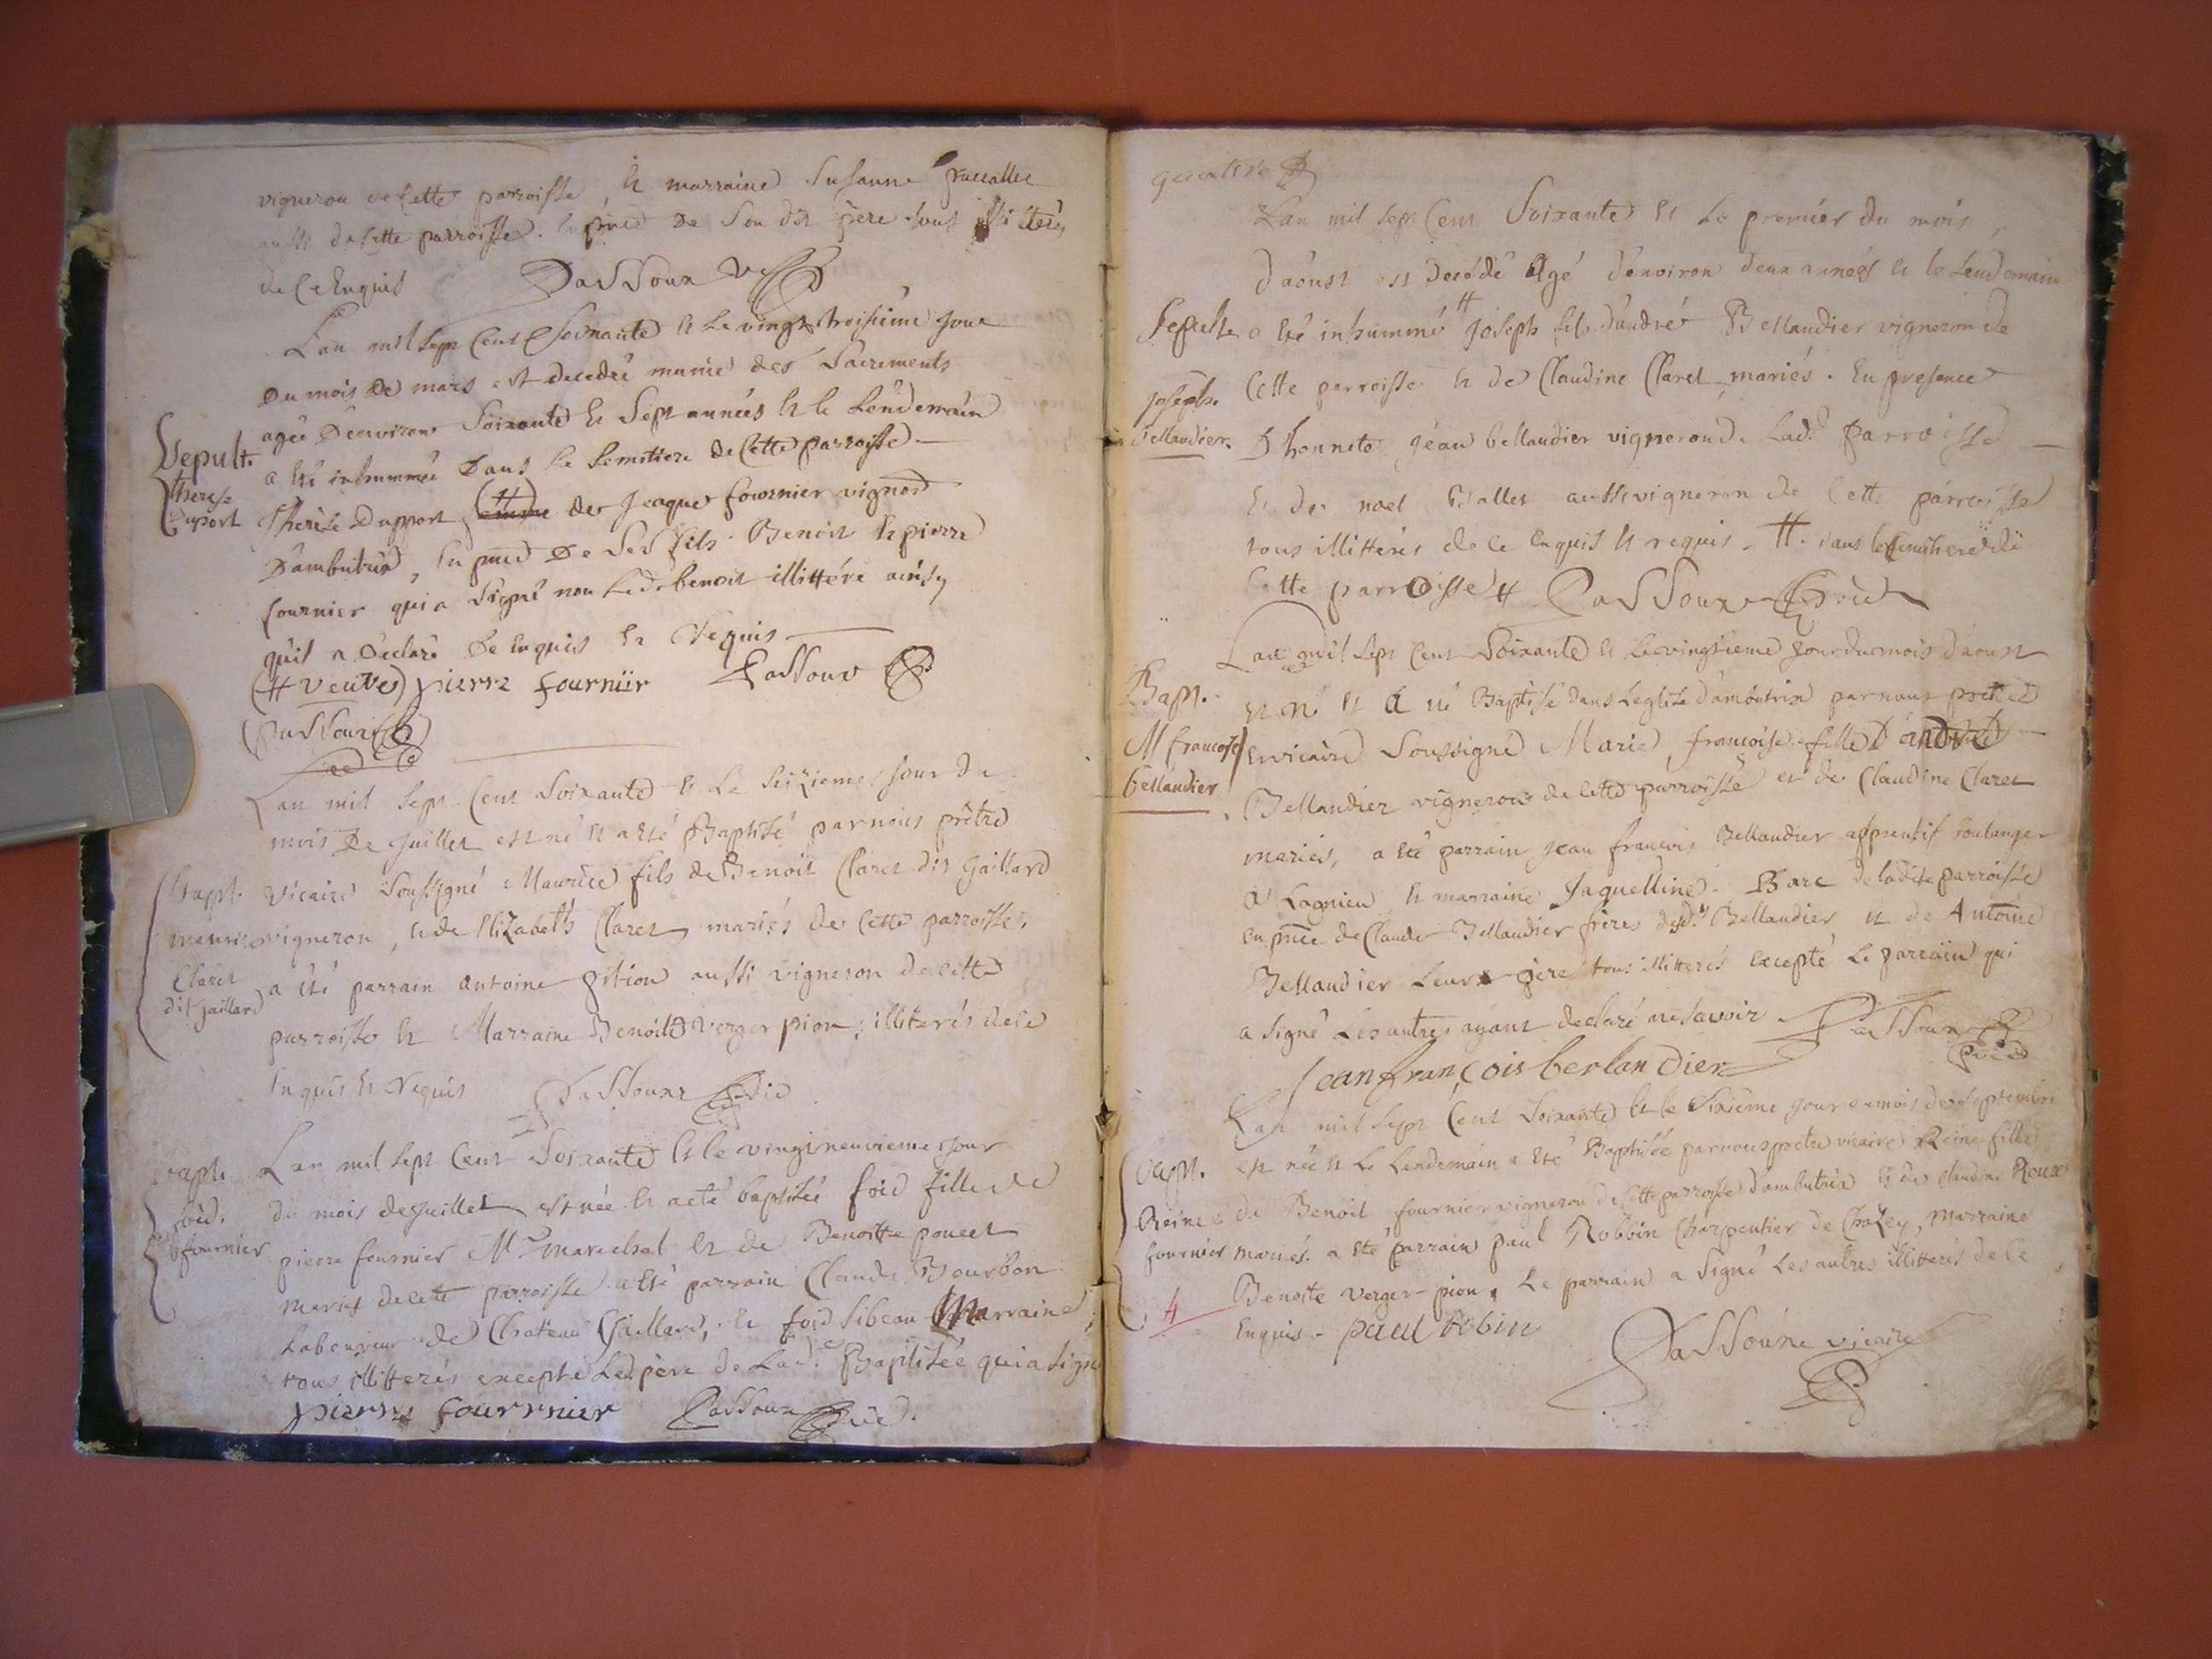 vigneron de cette parroisse, et marraine Susanne
aussi de cette parroisse. en pnce de son dit père tous illiterés
de ce enquis Passoux
L'an mil sept cent soixante et le vingt troisième jour
du mois de mars est decedée munie des Sacrements
agée d'environ soixante et sept années et le lendemain
Sepult. a été inhummée dans le semitiere de cette parroisse
therese Duport
Therèse Dupport (#) femme de Jeaque fournier vigneron
d'ambutrix, en pnce de ses fils Benoit et pierre
fournier qui a signé non led. benoit illittéré ainsy
qu'il a déclaré de enquis et requis
(# veuve) pierre fournïir Passoux
(Passoux)
L'an mil sept cent soixante et le seizieme jour du
mois de juillet est né et a été Baptisé par nous prêtre
Bapt. vicaire soussigné Maurice fils de Benoit Claret dit Gaillard
maurice vigneron, et de Elizabeth Claret mariés de cette parroisse.
Claret a été parrain antoine pition aussi vigneron de cette
dit Gaillard
parroisse et Marraine Benoitte verger pion; illiterés de ce
enquis et requis Passoux vic
Bapt. L'an mil sept cent soixante et le vingt neuvieme jour
foid. du mois de juillet est née et a eté baptisée foid fille de
fournier pierre fournier Me marechal et de Benoitte poncet
mariés de cette parroisse a été parrain Claude Bourbon
Laboureur de Chateau Gaillard, et foid Sibeau Marraine,
tous illitterés excepté led. père de lad.e Baptisée qui a signé
pierre fourrnier Passoux vic.
quatre
L'an mil sept cent soixante et le premier du mois
d'aoust est decédé agé d'environ deux années et le lendemain
Sepult a été inhummé # Joseph fils d'andré Bellandier vigneron de
joseph cette parroisse et de Claudine Claret mariés. En presance
bellandier. D'honnete Jean bellandier vigneron de lad.e parroisse
et de noel Ballet aussi vigneron de cette parroisse
tous illitterés de ce enquis et requis. #. dans le semithere de
cette parroisse # Passoux vic
L'an mil sept cent soixante et le vingtieme jour du mois d'aoust
Bapt. est né et a été Baptisé dans l'eglise d'ambutrix par nous prêtre
M francoise et vicaire soussigné Marie françoise fille d'andré
bellandier Bellandier vigneron de cette parroisse et de Claudine Claret
mariés, a été parrain jean françois Bellandier apprentif boulanger
a Lagnieu et marraine Jaquelline Barc de ladite parroisse
en pnce de Claude Bellandier frères desd.ts Bellandier et de Antoine
Bellandier leur père tous illitterés excepté le parrain qui
a signé les autres ayant declaré ne savoir Passoux
Jean françois berlandier vic
L'an mil sept cent soixante et le sixième jour du mois de septembre
Bapt. est née et le lendemain a été Baptisée par nous prêtre vicaire Reine fille
Reine de Benoit fournier vigneron de cette parroisse d'ambutrix et de Claudine Roux
fournier mariés. a été parrain paul Robbin Charpentier de Chazey, marraine
4 Benoite verger pion, le parrain a signé les autres illitterés de ce
enquis. paul robin Passoux vicaire